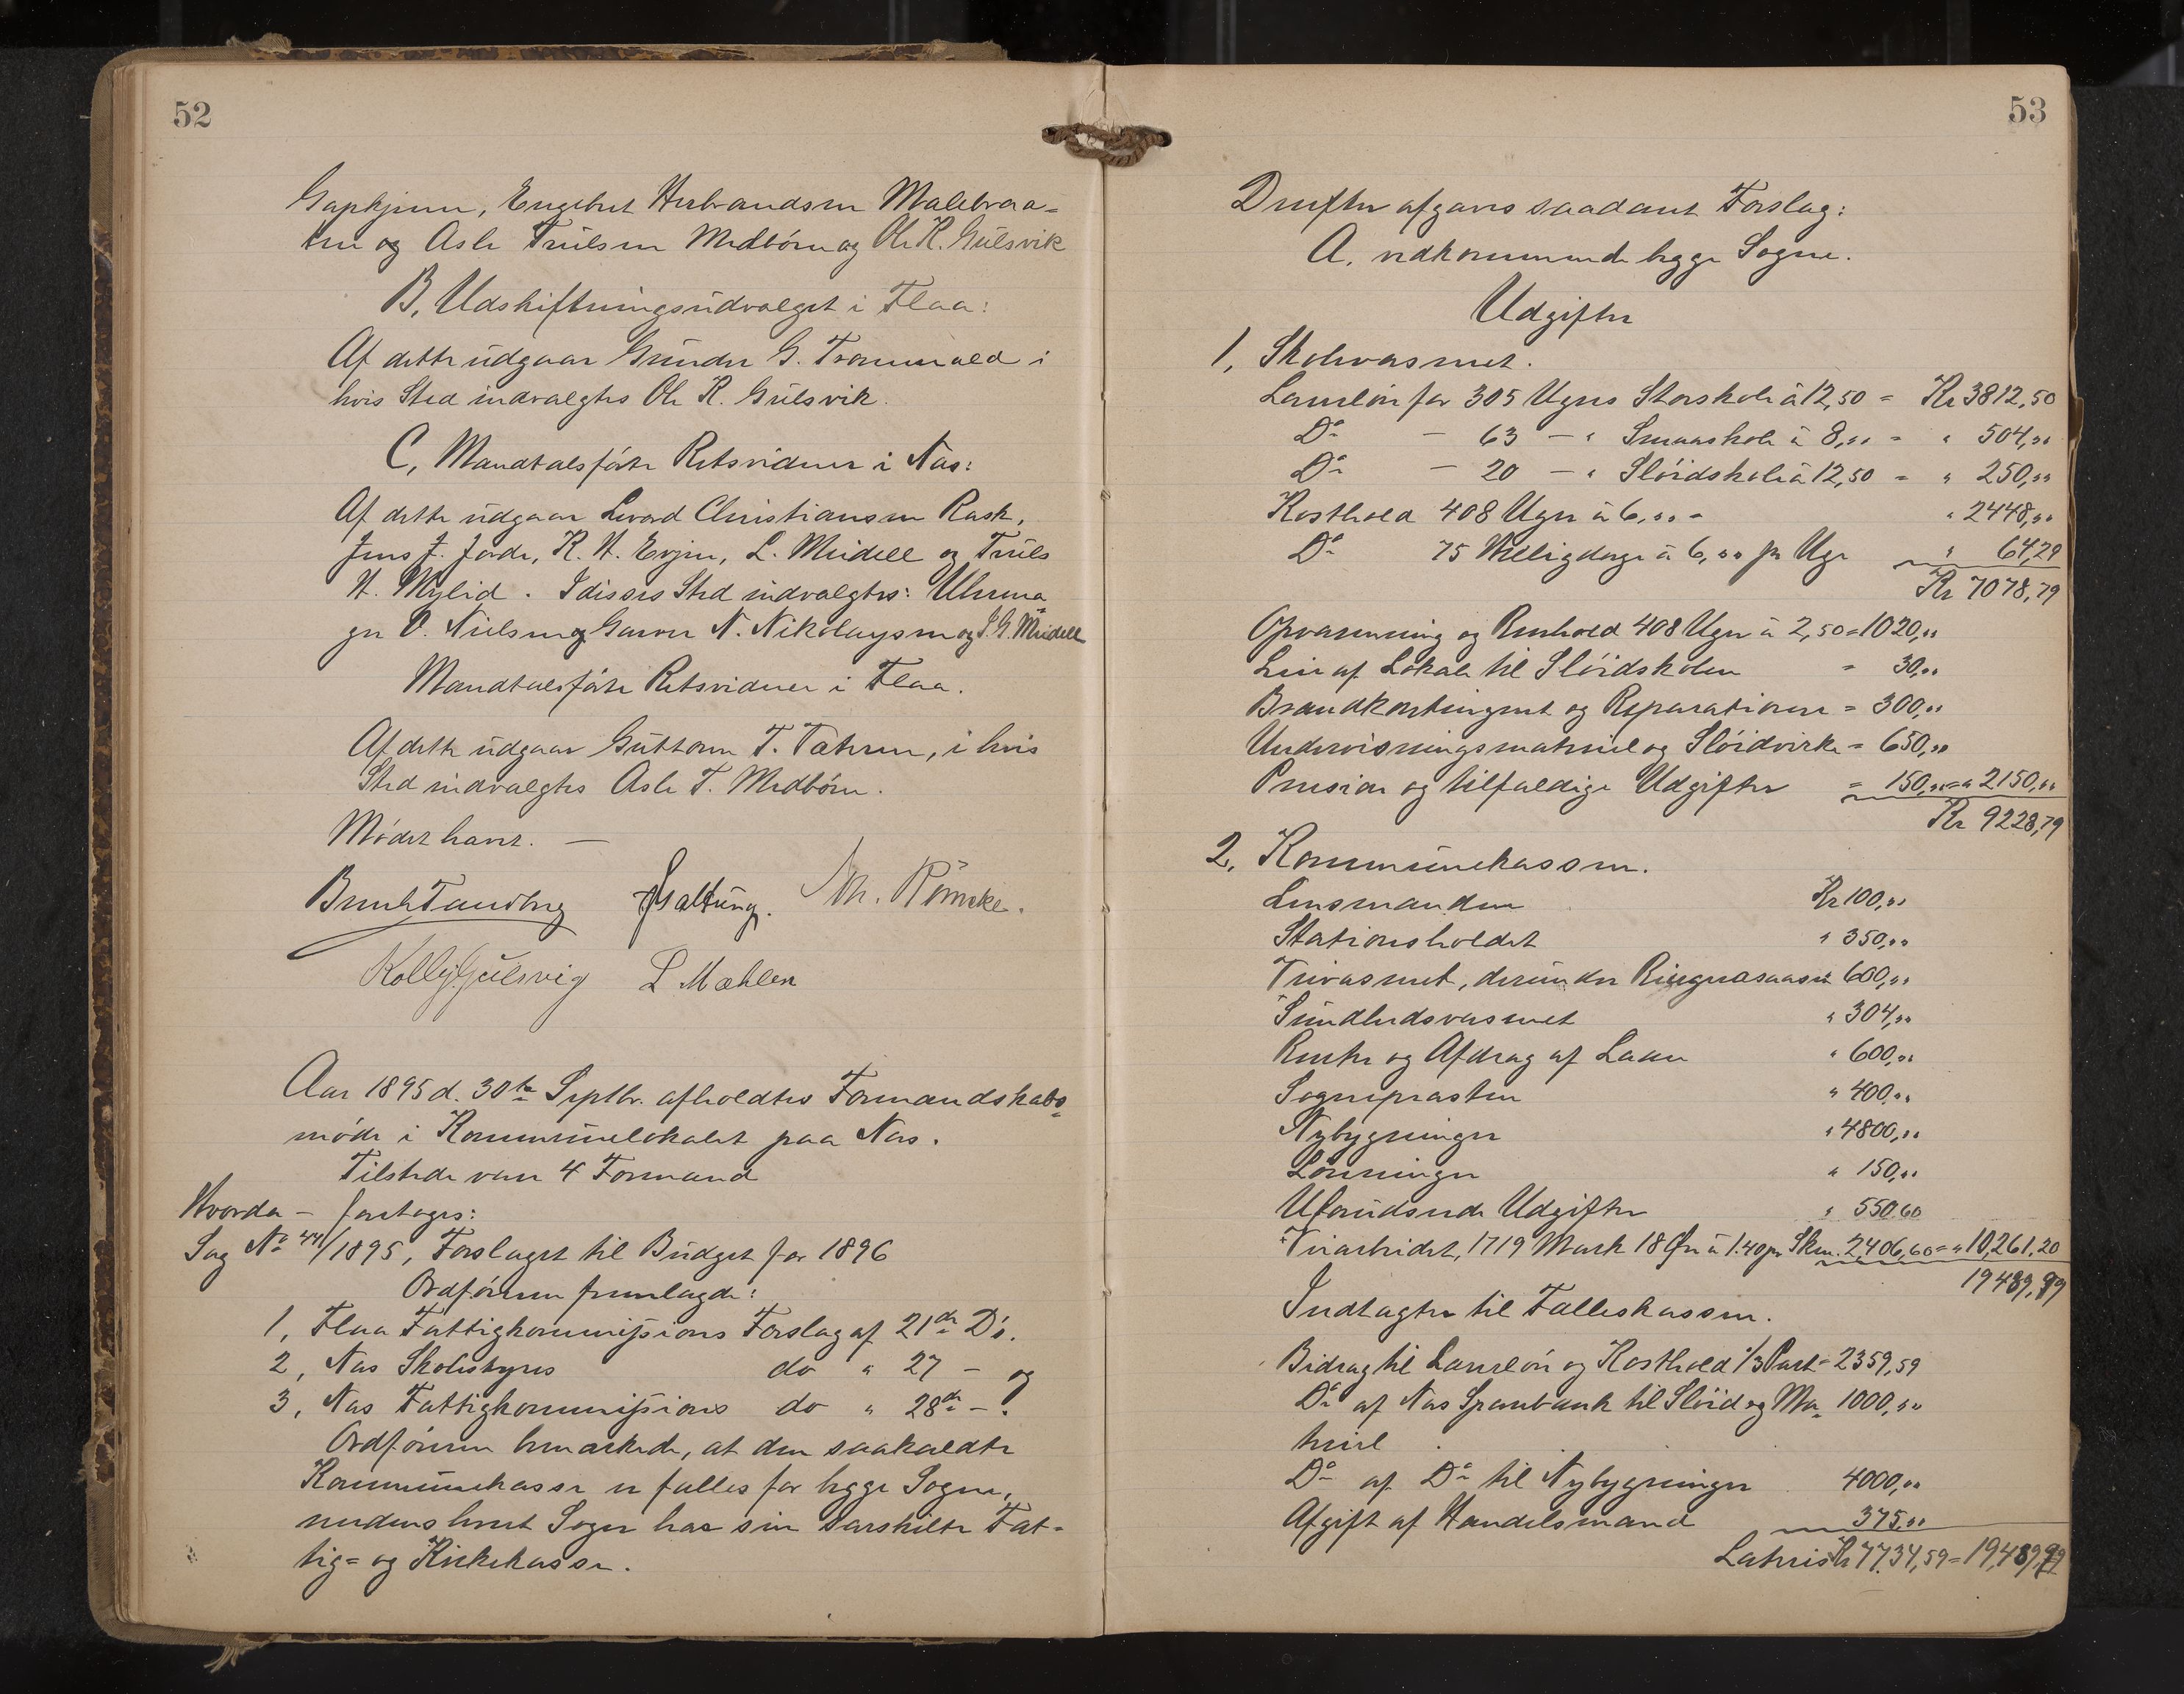 52
Gapkjinn, Engebret Herbrandsen Malebraa=
ten og Asle Trulsen Medbøen og Ole K. Gulsvik
B, Udskiftningsudvalget i Flaa:
Af dette udgaar Gunder G. Trommald i
hvis Sted indvalgtes Ole K. Gulsvik.
C, Mandtalsførte Retsvidner i Næs:
Af dette udgaar Levord Christiansen Rask,
Jens J. Jorde, K. H. Evjen, L. Meidell og Truls
H. Mylid. I disses Sted indvalgtes: Uhrma=
ger O. Nielsen og Garver N. Nikolaysen og J. G. Meidell
Mandtalsførte Retsvidner i Flaa.
Af dette udgaar Guttorm T. Tæhrum, i hvis
Sted indvalgtes Asle T. Medbøen.
Mødet hævet. —
Bernh Tandberg Galtung. Th. Rømcke.
Kolbj. Gulsvig L. Mæhlen
Aar 1895 d. 30te Septbr. afholdtes Formandskabs=
møde i Kommunelokalet paa Næs.
Tilstede vare 4 Formænd
Hvorda — foretoges:
Sag No 44/1895, Forslaget til Budget for 1896
Ordføreren fremlagde:
1, Flaa Fattigkommissions Forslag af 21de D's.
2, Næs Skolestyres do " 27 — og
3, Næs Fattigkommissions do " 28de — .
Ordføreren bemærkede, at den saakaldte
Kommunekasse er fælles for begge Sogne,
medens hvert Sogn har sin særskilte Fat=
tig= og Kirkekasse.
53
Derefter afgaves saadant Forslag:
A. vedkommende begge Sogne.
Udgifter
1, Skolevæsenet.
Lærerløn for 305 Ugers Storskole à 12,50 = Kr 3812,50
Do — 63 — " Smaaskole à 8,"" = " 504,""
Do — 20 — " Sløidskole à 12,50 = " 250,""
Kosthold 408 Uger à 6,"" = " 2448,""
Do 75 Helligdage à 6,"" pr Uge " 64,29
Kr 7078,79
Opvarmning og Renhold 408 Uger à 2,50 = 1020,""
Leie af Lokale til Sløidskolen = 30,""
Brandkontingent og Reparationer = 300,""
Undervisningsmateriel og Sløidvirke = 650,""
Pension og tilfældige Udgifter = 150,"" = " 2150,""
Kr 9228,79
2, Kommunekassen.
Lensmanden Kr 100,""
Stationsholdet " 350,""
Veivæsenet, derunder Ringnesaasen 600,""
Sundhedsvæsenet " 304,""
Renter og Afdrag af Laan " 600,""
Sognepræsten " 400,""
Nybygninger " 4800,""
Lønninger " 150,""
Uforudseede Udgifter " 550.60
Veiarbeidet, 1719 Mark 18 Øre à 1.40 pr Skm. 2,406,60 = " 10,261.20
19489,99
Indtægter til Fælleskassen.
Bidrag til Lærerløn og Kosthold 1/3 Part = 2359,59
Do af Næs Sparebank til Sløid og Ma= 1000,""
teriel
Do af Do til Nybygninger 4000,""
Afgift af Handelsmænd 375,""
Lateris Kr 7734,59 = 19,489,99